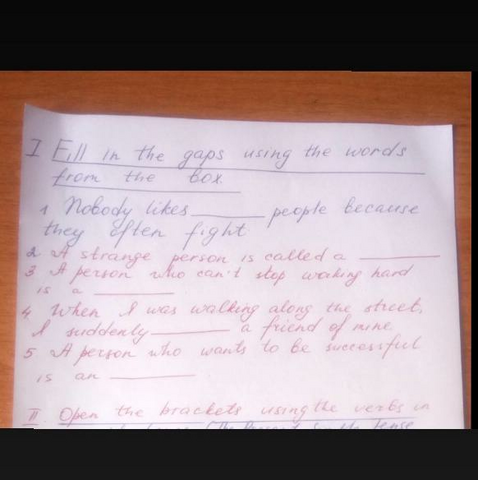 I Fill in the gaps using the words
from the box
1 Nobody likes ______ people because
they often fight
2 A strange person is called a ______
3 A person who can't stop working hard
is a ______
4 When I was walking along the street,
I suddenly ______ a friend of mine
5 A person who wants to be successful
is an ______
II Open the brackets using the verbs in
(The Present Simple Tense